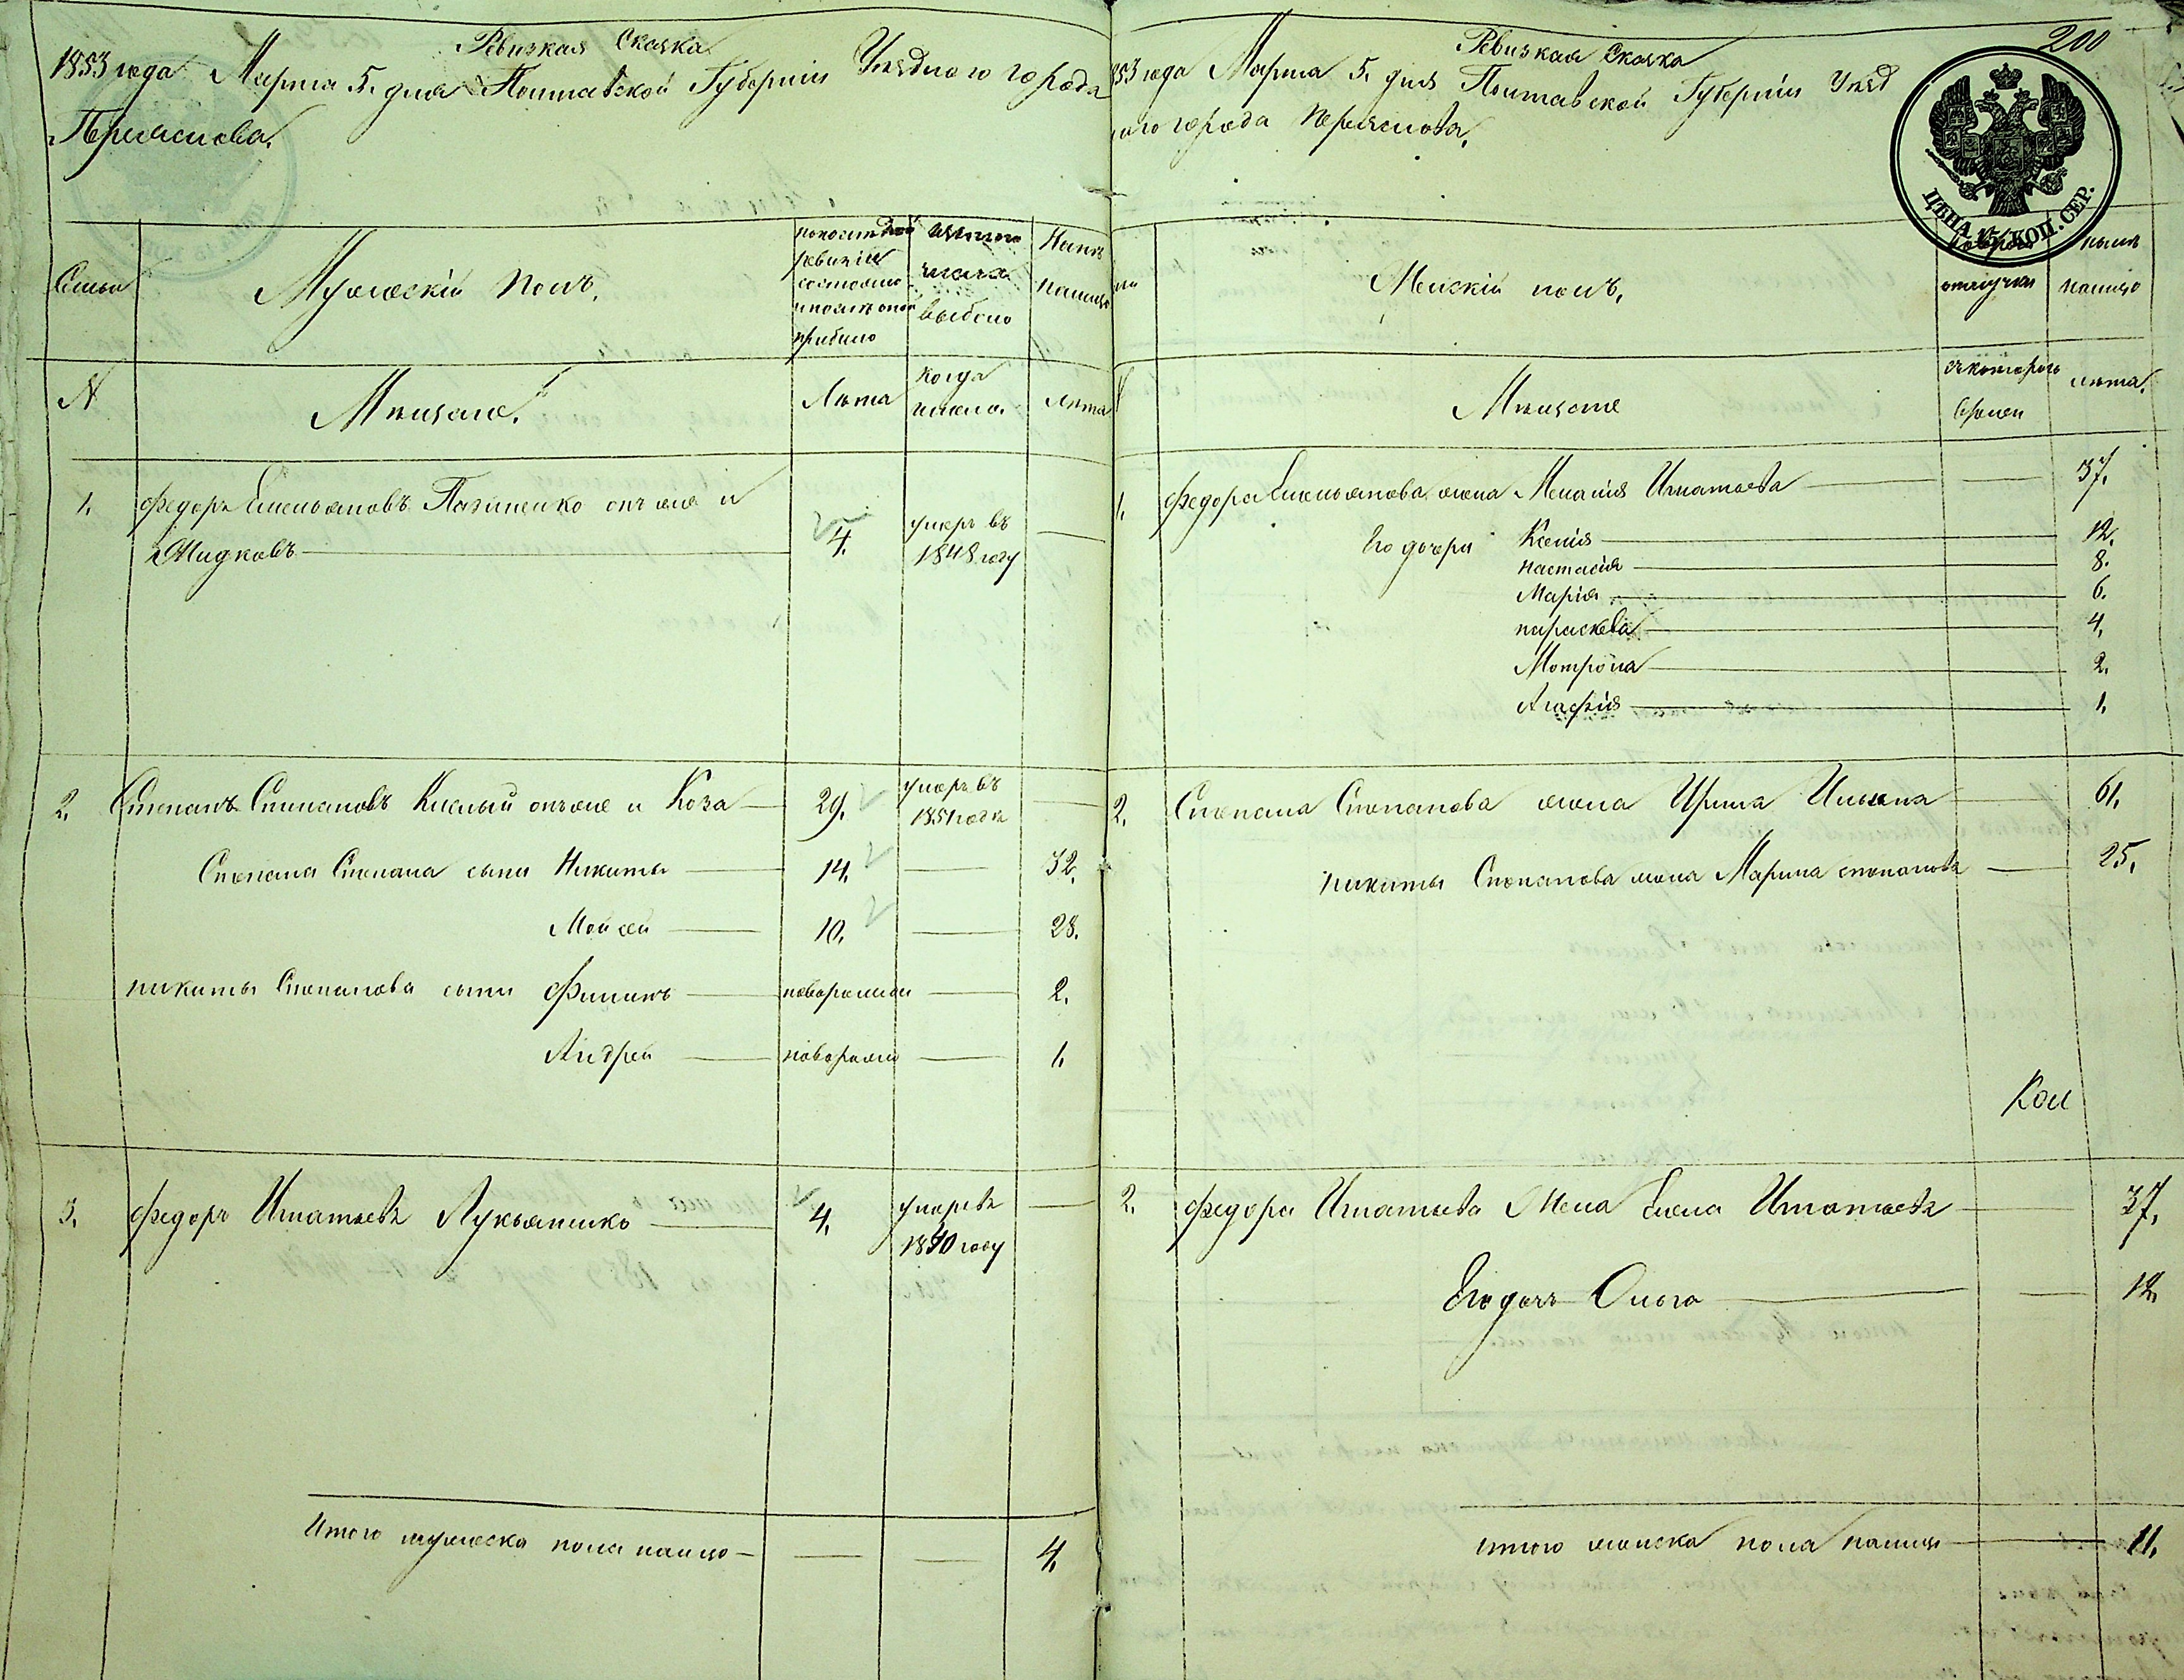 Ревизкая Скаска
1853 года Марта 5. дня Полтавской Губернии Уезднаго города
Переяслова.
Семьи
Мужескій полъ.
по последней ревизіи состояло и после оной прибыло
изъ того числа выбыло
Ныне налицо
№
Мещане.
Лета
когда имено.
Лета
1. Федоръ Емельяновъ Пазиненко онъ же и
Жидковъ
4.
умеръ въ
1848 году
2. Степанъ Степановъ Кислый онъ же и Коза
29.
умеръ въ
1851 года
Степана Степана сыны Никита 14. 32.
Мойсей 10. 28.
Никиты Степанова сыны Филипъ новорожден 2.
Андрей новорожд 1.
3. Федоръ Игнатьевъ Лукьяненко 4.
умеръ въ
1840 году
Итого мужеска пола налицо 4.
Ревизкая Скаска
200
853 года Марта 5. дня Полтавской Губерніи Уезд
наго города Переяслова.
ЦѢНА 15 КОП. СЕР.
Женскій полъ.
отлучки
ныне налицо
Мещане
съ котораго времен
лета.
1. Федора Емельянова жена Меланія Игнатьева 37.
Его дочери Ксенія 12.
Настасія 8.
Марія 6.
Параскева 4.
Мотрона 2.
Агафія 1.
2. Степана Степанова жена Ирина Ильина 61.
Никиты Степанова жена Марина Степанова 25.
Кол
2. Федора Игнатьева Жена Елена Игнатьева 37.
Его дочь Ольга 12.
Итого женска пола налицо 11.